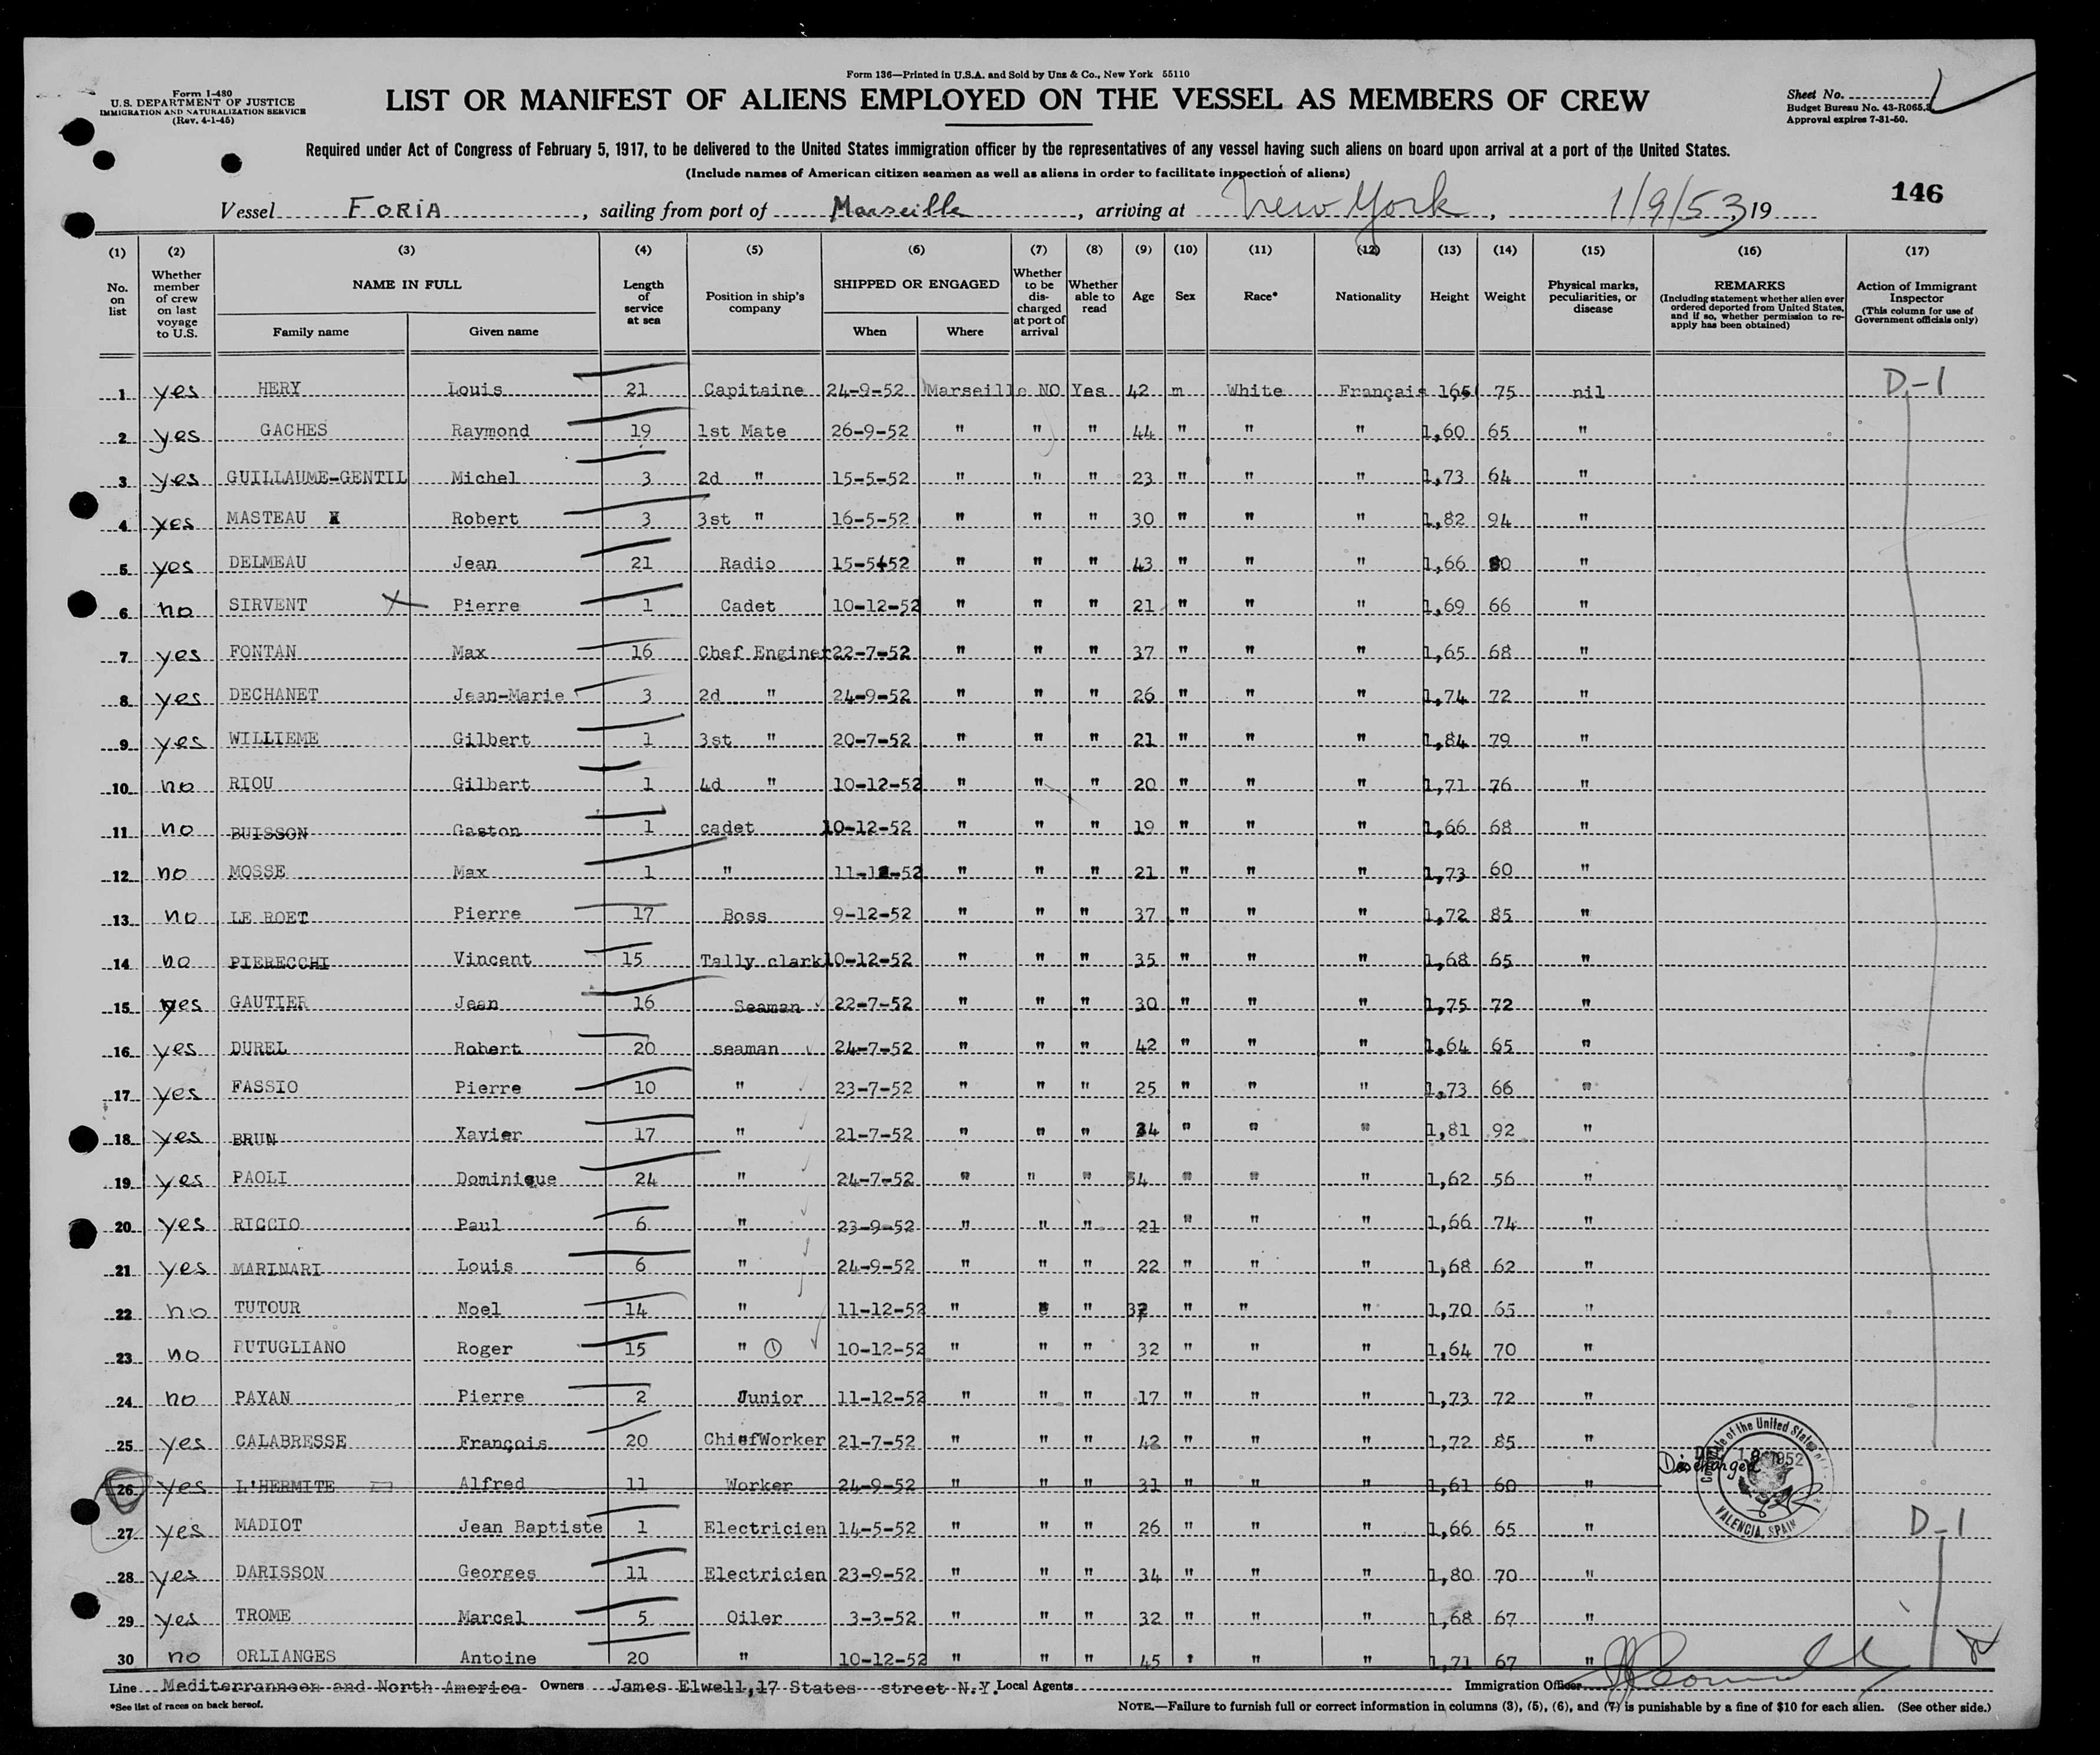 Form 136—Printed in U.S.A. and Sold by Unz & Co., New York 55110
Form I-480
U.S. DEPARTMENT OF JUSTICE
IMMIGRATION AND NATURALIZATION SERVICE
(Rev. 4-1-45)
LIST OR MANIFEST OF ALIENS EMPLOYED ON THE VESSEL AS MEMBERS OF CREW
Sheet No.
Budget Bureau No. 43-R065.
Approval expires 7-31-50.
Required under Act of Congress of February 5, 1917, to be delivered to the United States immigration officer by the representatives of any vessel having such aliens on board upon arrival at a port of the United States.
(Include names of American citizen seamen as well as aliens in order to facilitate inspection of aliens)
146
Vessel FORIA, sailing from port of Marseille, arriving at New York, 1/9/53 19
(1) (2) (3) (4) (5) (6) (7) (8) (9) (10) (11) (12) (13) (14) (15) (16) (17)
No. on list
Whether member of crew on last voyage to U.S.
NAME IN FULL
Family name Given name
Length of service at sea
Position in ship's company
SHIPPED OR ENGAGED
When Where
Whether to be discharged at port of arrival
Whether able to read
Age
Sex
Race*
Nationality
Height
Weight
Physical marks, peculiarities, or disease
REMARKS
(Including statement whether alien ever ordered deported from United States, and if so, whether permission to re-apply has been obtained)
Action of Immigrant Inspector
(This column for use of Government officials only)
1 yes HERY Louis 21 Capitaine 24-9-52 Marseille NO Yes 42 m White Français 165 75 nil D-1
2 yes GACHES Raymond 19 1st Mate 26-9-52 " " " 44 " " " 1,60 65 "
3 yes GUILLAUME-GENTIL Michel 3 2d " 15-5-52 " " " 23 " " " 1,73 64 "
4 yes MASTEAU X Robert 3 3st " 16-5-52 " " " 30 " " " 1,82 94 "
5 yes DELMEAU Jean 21 Radio 15-5-52 " " " 43 " " " 1,66 80 "
6 no SIRVENT X Pierre 1 Cadet 10-12-52 " " " 21 " " " 1,69 66 "
7 yes FONTAN Max 16 Chef Enginer 22-7-52 " " " 37 " " " 1,65 68 "
8 yes DECHANET Jean-Marie 3 2d " 24-9-52 " " " 26 " " " 1,74 72 "
9 yes WILLIEME Gilbert 1 3st " 20-7-52 " " " 21 " " " 1,84 79 "
10 no RIOU Gilbert 1 4d " 10-12-52 " " " 20 " " " 1,71 76 "
11 no BUISSON Gaston 1 cadet 10-12-52 " " " 19 " " " 1,66 68 "
12 no MOSSE Max 1 " 11-12-52 " " " 21 " " " 1,73 60 "
13 no LE ROET Pierre 17 Boss 9-12-52 " " " 37 " " " 1,72 85 "
14 no PIERECCHI Vincent 15 Tally clark 10-12-52 " " " 35 " " " 1,68 65 "
15 yes GAUTIER Jean 16 Seaman 22-7-52 " " " 30 " " " 1,75 72 "
16 yes DUREL Robert 20 seaman 24-7-52 " " " 42 " " " 1,64 65 "
17 yes FASSIO Pierre 10 " 23-7-52 " " " 25 " " " 1,73 66 "
18 yes BRUN Xavier 17 " 21-7-52 " " " 34 " " " 1,81 92 "
19 yes PAOLI Dominique 24 " 24-7-52 " " " 54 " " " 1,62 56 "
20 yes RICCIO Paul 6 " 23-9-52 " " " 21 " " " 1,66 74 "
21 yes MARINARI Louis 6 " 24-9-52 " " " 22 " " " 1,68 62 "
22 no TUTOUR Noel 14 " 11-12-52 " " " " " " 1,70 65 "
23 no RUTUGLIANO Roger 15 " 1 10-12-52 " " " 32 " " " 1,64 70 "
24 no PAYAN Pierre 2 Junior 11-12-52 " " " 17 " " " 1,73 72 "
25 yes CALABRESSE François 20 ChiefWorker 21-7-52 " " " 42 " " " 1,72 85 "
26 yes L'HERMITE Alfred 11 Worker 24-9-52 " " " 31 " " " 1,61 60 " Discharged
of the United States
1952
VALENCIA, SPAIN
27 yes MADIOT Jean Baptiste 1 Electricien 14-5-52 " " " 26 " " " 1,66 65 " D-1
28 yes DARISSON Georges 11 Electricien 23-9-52 " " " 34 " " " 1,80 70 "
29 yes TROME Marcel 5 Oiler 3-3-52 " " " 32 " " " 1,68 67 "
30 no ORLIANGES Antoine 20 " 10-12-52 " " " 45 " " " 1,71 67 "
Line Mediterranneen and North America Owners James Elwell, 17 States street N.Y. Local Agents Immigration Officer
*See list of races on back hereof.
NOTE.—Failure to furnish full or correct information in columns (3), (5), (6), and (7) is punishable by a fine of $10 for each alien. (See other side.)